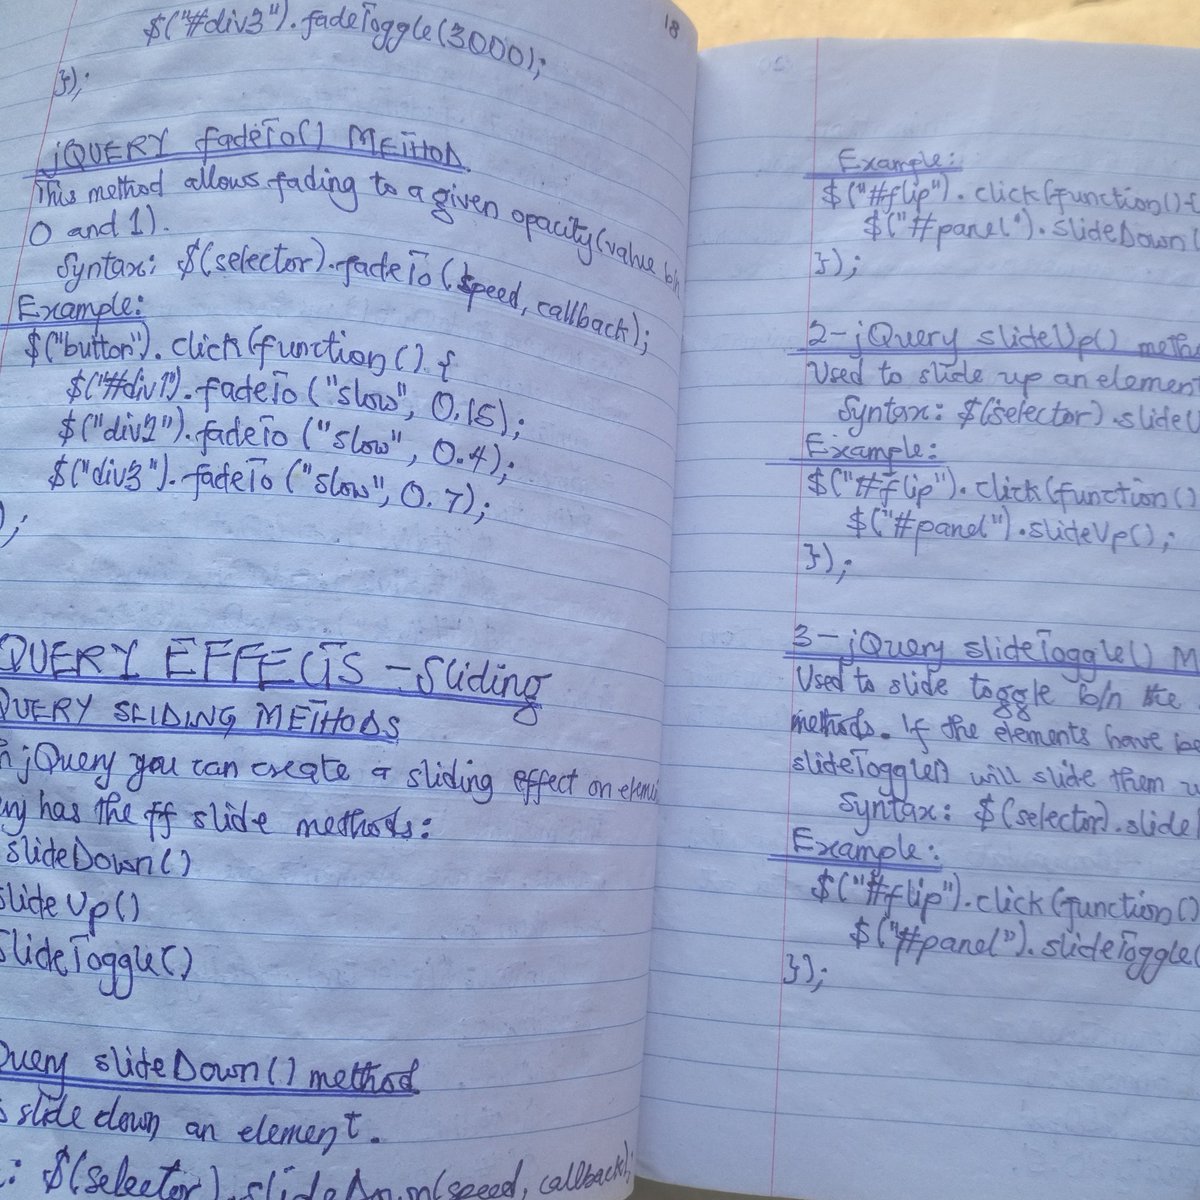 $("#div3").fadeToggle(3000);
18
});
jQUERY fadeTo() METHOD
This method allows fading to a given opacity(value b/n
0 and 1).
Syntax: $(selector).fadeTo(speed, callback);
Example:
$("button").click(function() {
$("#div1").fadeTo("slow", 0.15);
$("div2").fadeTo("slow", 0.4);
$("div3").fadeTo("slow", 0.7);
);
QUERY EFFECTS - Sliding
QUERY SLIDING METHODS
jQuery you can create a sliding effect on
has the ff slide methods:
slideDown()
slideUp()
slideToggle()
Query slideDown() method
slide down an element.
: $(selector).slideDown(speed, callback);
Example:
$("#flip").click(function(){
$("#panel").slideDown(
});
2-jQuery slideUp()
Used to slide up an element
Syntax: $(selector).slideU
Example:
$("#flip").click(function()
$("#panel").slideUp();
});
3-jQuery slideToggle() M
Used to slide toggle b/n the
methods. If the elements have
slideToggle() will slide them
Syntax: $(selector).slide
Example:
$("#flip").click(function()
$("#panel").slideToggle(
});